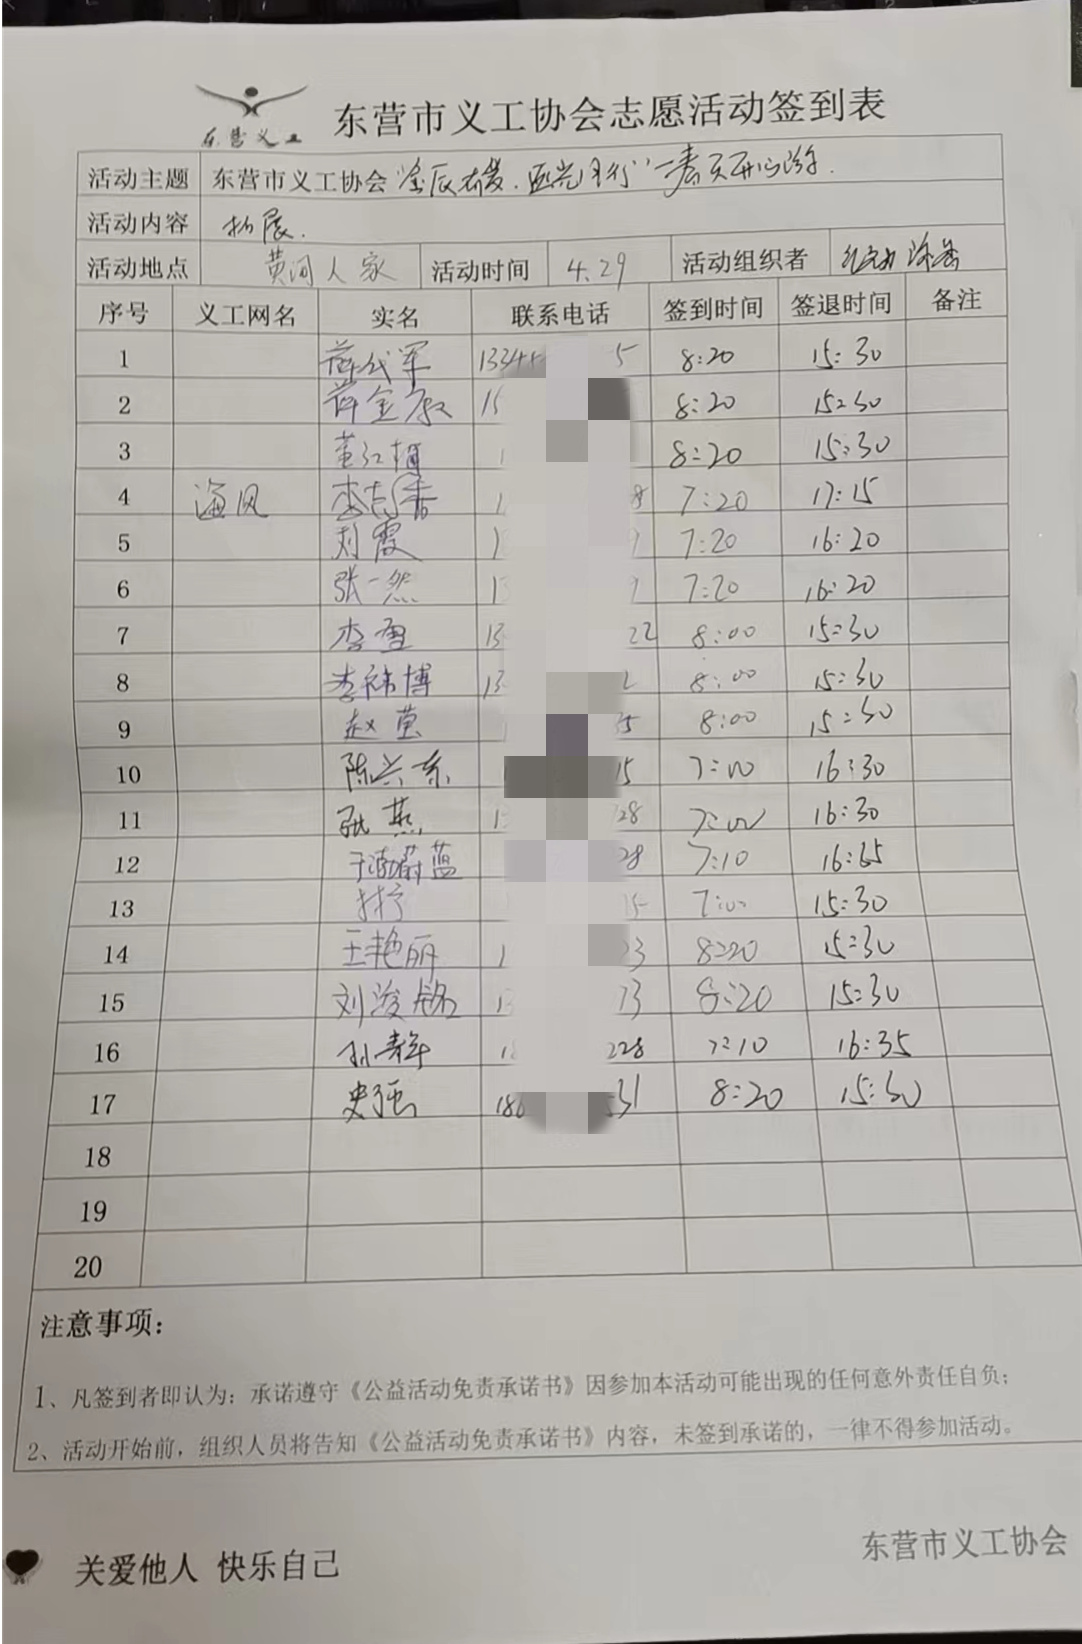 东营义工
东营市义工协会志愿活动签到表
活动主题 东营市义工协会“ 有爱. 行”一春天开心游.
活动内容 拓展.
活动地点 黄河人家 活动时间 4.29 活动组织者
序号 义工网名 实名 联系电话 签到时间 签退时间 备注
1 薛代军 1334 5 8:20 15:30
2 薛金 15 8:20 15:30
3 董红梅 1 8:20 15:30
4 海风 李 香 1 8 7:20 17:15
5 刘霞 1 7:20 16:20
6 张一然 13 7:20 16:20
7 李雪 13 22 8:00 15:30
8 李祎博 13 2 8:00 15:30
9 赵莹 35 8:00 15:30
10 陈兴东 15 7:00 16:30
11 张燕 1 28 7:00 16:30
12 蔚蓝 28 7:10
13 15 7:00 15:30
14 王艳丽 1 3 8:20 15:30
15 刘浚铭 13 73 8:20 15:30
16 孙青年 18 228 7:10 16:35
17 史强 186 531 8:20 15:30
18
19
20
注意事项:
1、凡签到者即认为: 承诺遵守《公益活动免责承诺书》因参加本活动可能出现的任何意外责任自负;
2、活动开始前, 组织人员将告知《公益活动免责承诺书》内容, 未签到承诺的, 一律不得参加活动。
关爱他人 快乐自己
东营市义工协会